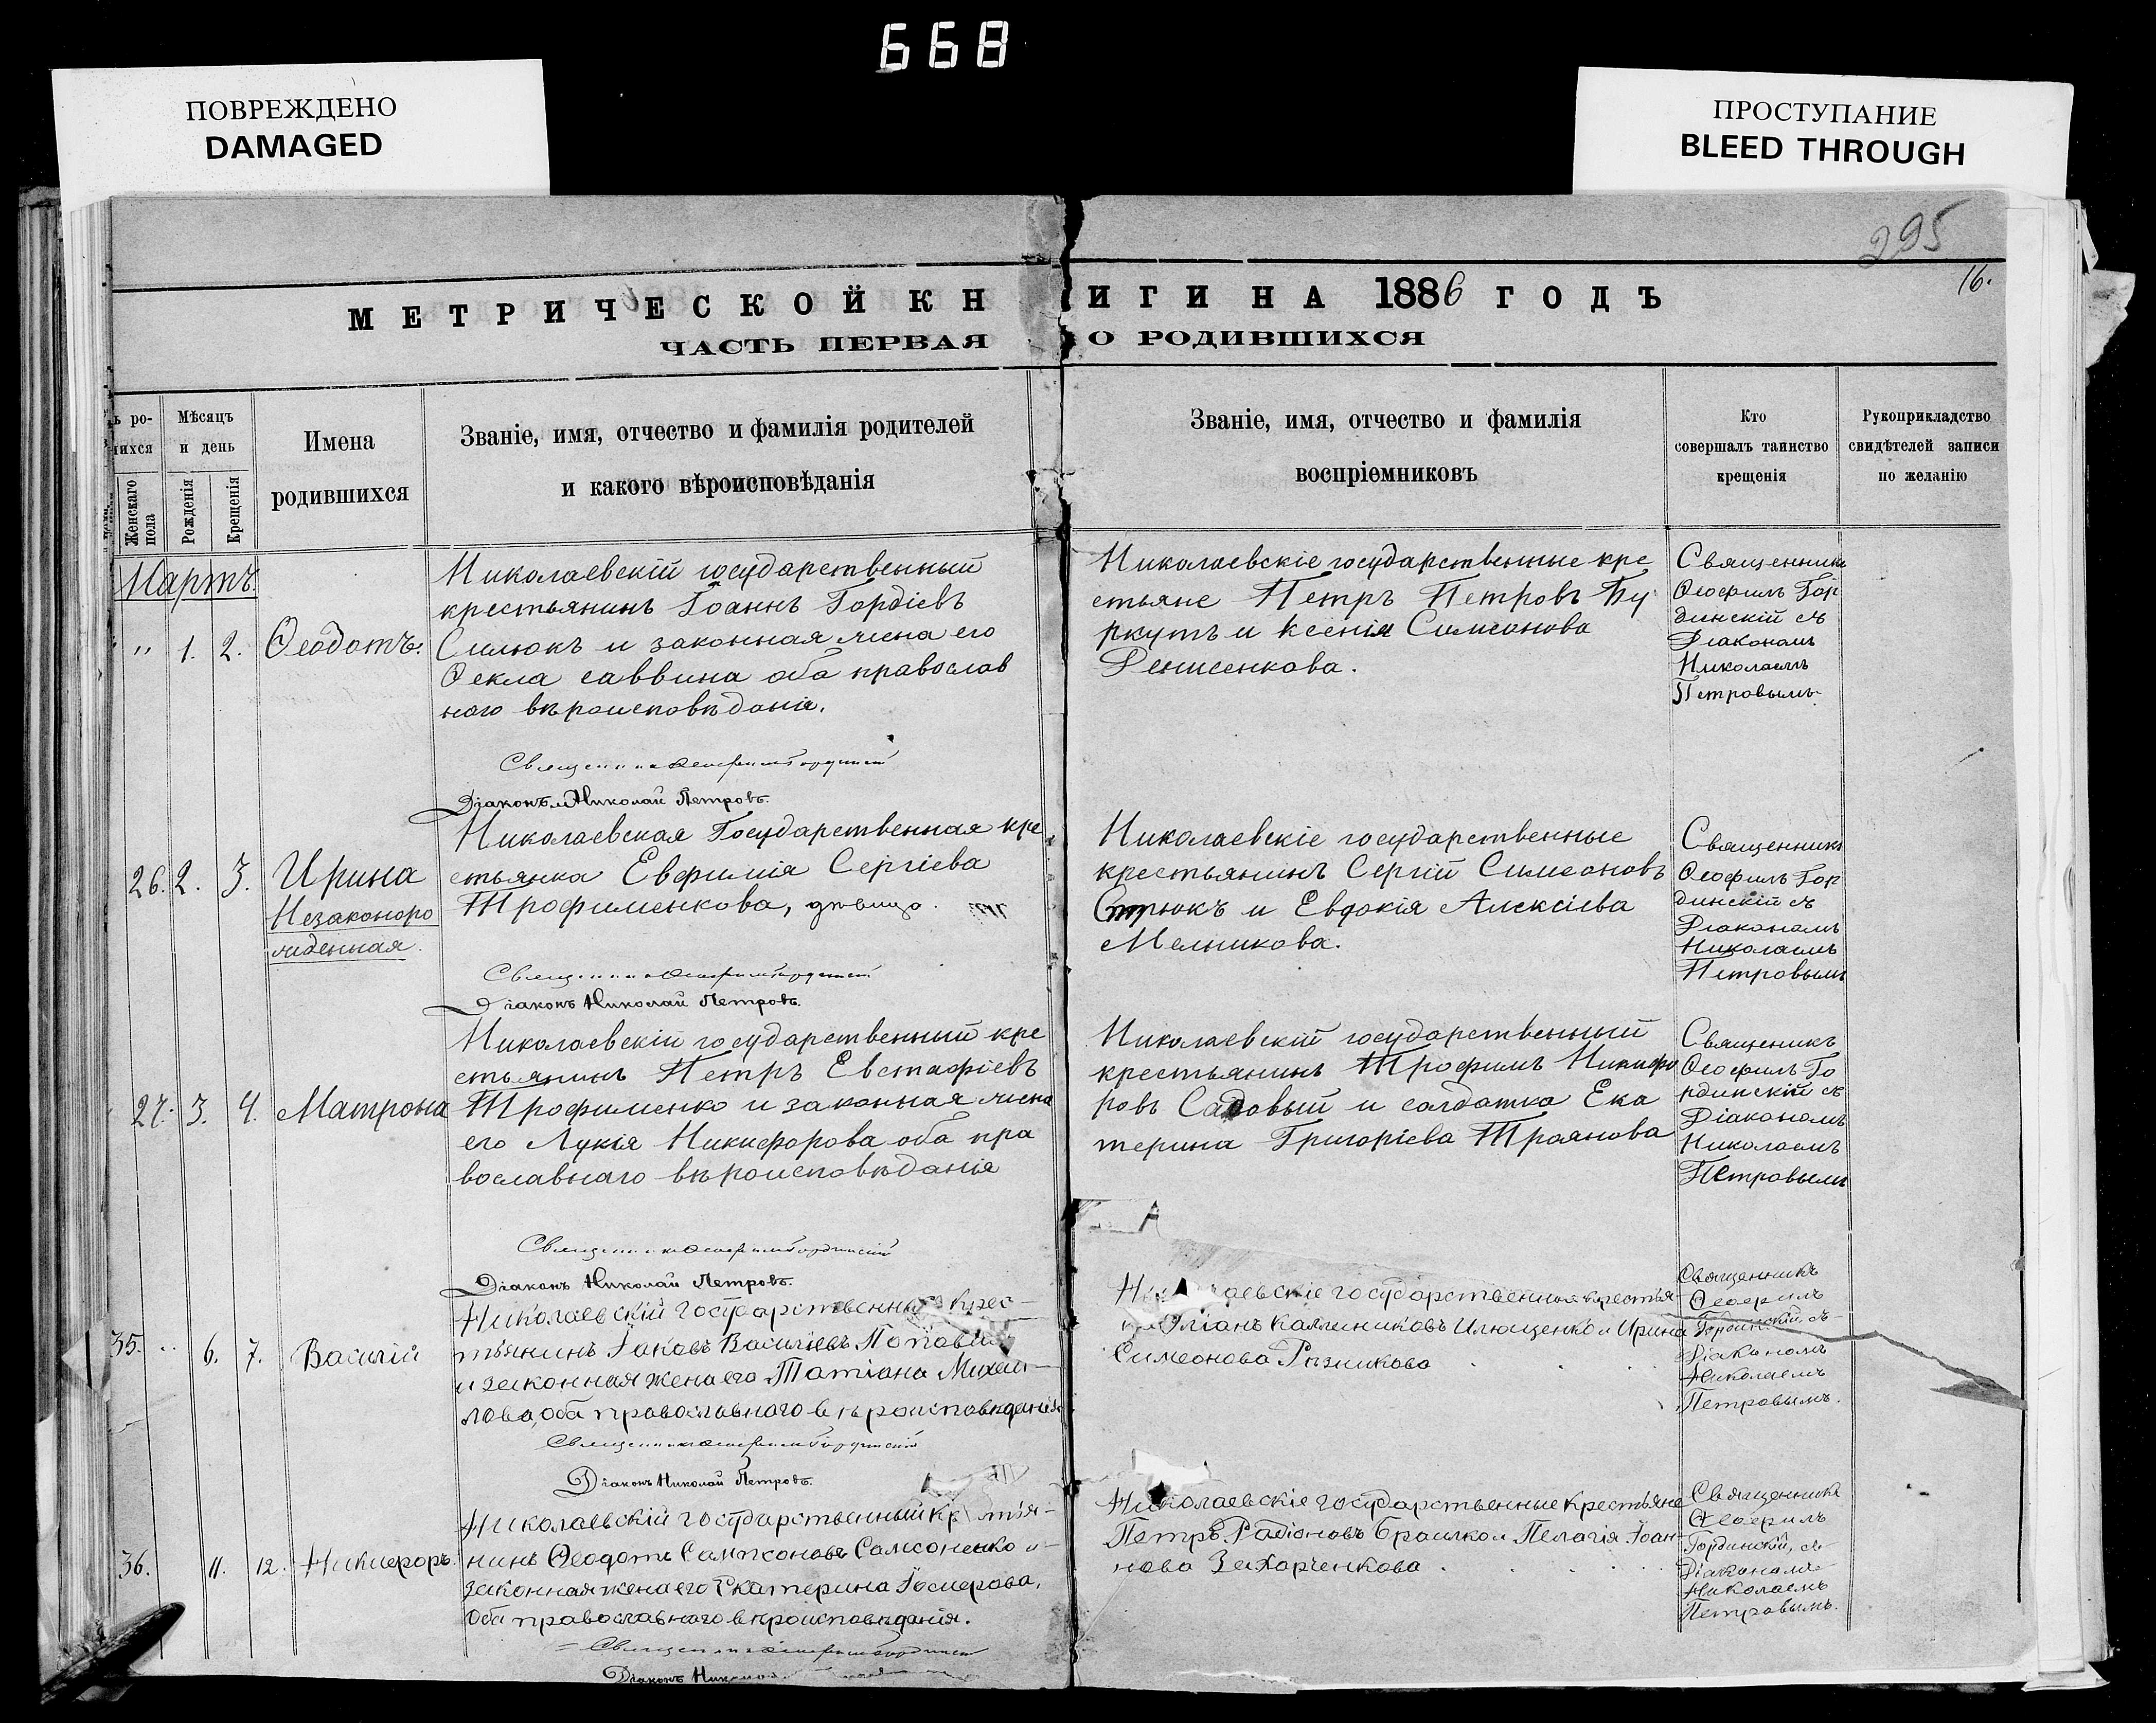 668
ПОВРЕЖДЕНО
DAMAGED
ПРОСТУПАНИЕ
BLEED THROUGH
295
16.
МЕТРИЧЕСКОЙ КНИГИ НА 1886 ГОДЪ
ЧАСТЬ ПЕРВАЯ О РОДИВШИХСЯ
Мѣсяцъ
и день
Женскаго
пола
Рожденія
Крещенія
Имена
родившихся
Званіе, имя, отчество и фамилія родителей
и какого вѣроисповѣданія
Званіе, имя, отчество и фамилія
воспріемниковъ
Кто
совершалъ таинство
крещенія
Рукоприкладство
свидѣтелей записи
по желанію
Мартъ.
" 1. 2. Ѳеодотъ.
Николаевскій государственный
крестьянинъ Іоаннъ Гордіевъ
и законная жена его
Ѳекла Саввина оба православ
наго вѣроисповѣданія.
Священникъ Ѳеофилъ Гординскій
Діаконъ Николай Петровъ.
Николаевскіе государственные кре
стьяне Петръ Петровъ Бу
ркутъ и Ксенія Симеонова
Денисенкова.
Священникъ
Ѳеофилъ Гор
динскій съ
Діакономъ
Николаемъ
Петровымъ.
26. 2. 3. Ирина
Незаконоро
жденная.
Николаевская Государственная кре
стьянка Евфимія Сергіева
Трофименкова, дѣвица.
Священникъ Ѳеофилъ Гординскій
Діаконъ Николай Петровъ.
Николаевскіе государственные
крестьянинъ Сергій Симеоновъ
и Евдокія Алексіева
Мельникова.
Священникъ
Ѳеофилъ Гор
динскій съ
Діакономъ
Николаемъ
Петровымъ
27. 3. 4. Матрона
Николаевскій государственный кре
стьянинъ Петръ Евстафіевъ
Трофименко и законная жена
его Лукія Никифорова оба пра
вославнаго вѣроисповѣданія
Священникъ Ѳеофилъ Гординскій
Діаконъ Николай Петровъ.
Николаевскій государственный
крестьянинъ Трофимъ Никифо
ровъ Садовый и солдатка Ека
терина Григоріева Троянова
Священикъ
Ѳеофилъ Го
рдинскій съ
Діакономъ
Николаемъ
Петровымъ
35. 6. 7. Василій
Николаевскій государственный крес-
тьянинъ Іаковъ Васильевъ
и законная жена его Татіана Михаи-
лова, оба православнаго вѣроисповѣданія
Священникъ Ѳеофилъ Гординскій
Діаконъ Николай Петровъ.
государственные крестья-
Каллиниковъ Илющенко и Ирина
Симеонова Рѣзникова
Священникъ
Ѳеофилъ
Гординскій, съ
Діакономъ
Николаемъ
Петровымъ.
36. 11. 12. Никифоръ.
Николаевскій государственный
нинъ Ѳеодотъ Сампсоновъ Самсоненко и
законная жена его Екатерина Іосифова,
оба православнаго вѣроисповѣданія.
Священникъ Ѳеофилъ Гординскій
Діаконъ
Николаевскіе государственные крестьяне
Петръ Радіоновъ Браилко и Пелагія Іоан-
нова Захарченкова
Священникъ
Ѳеофилъ
Гординскій, съ
Діакономъ
Николаемъ
Петровымъ.